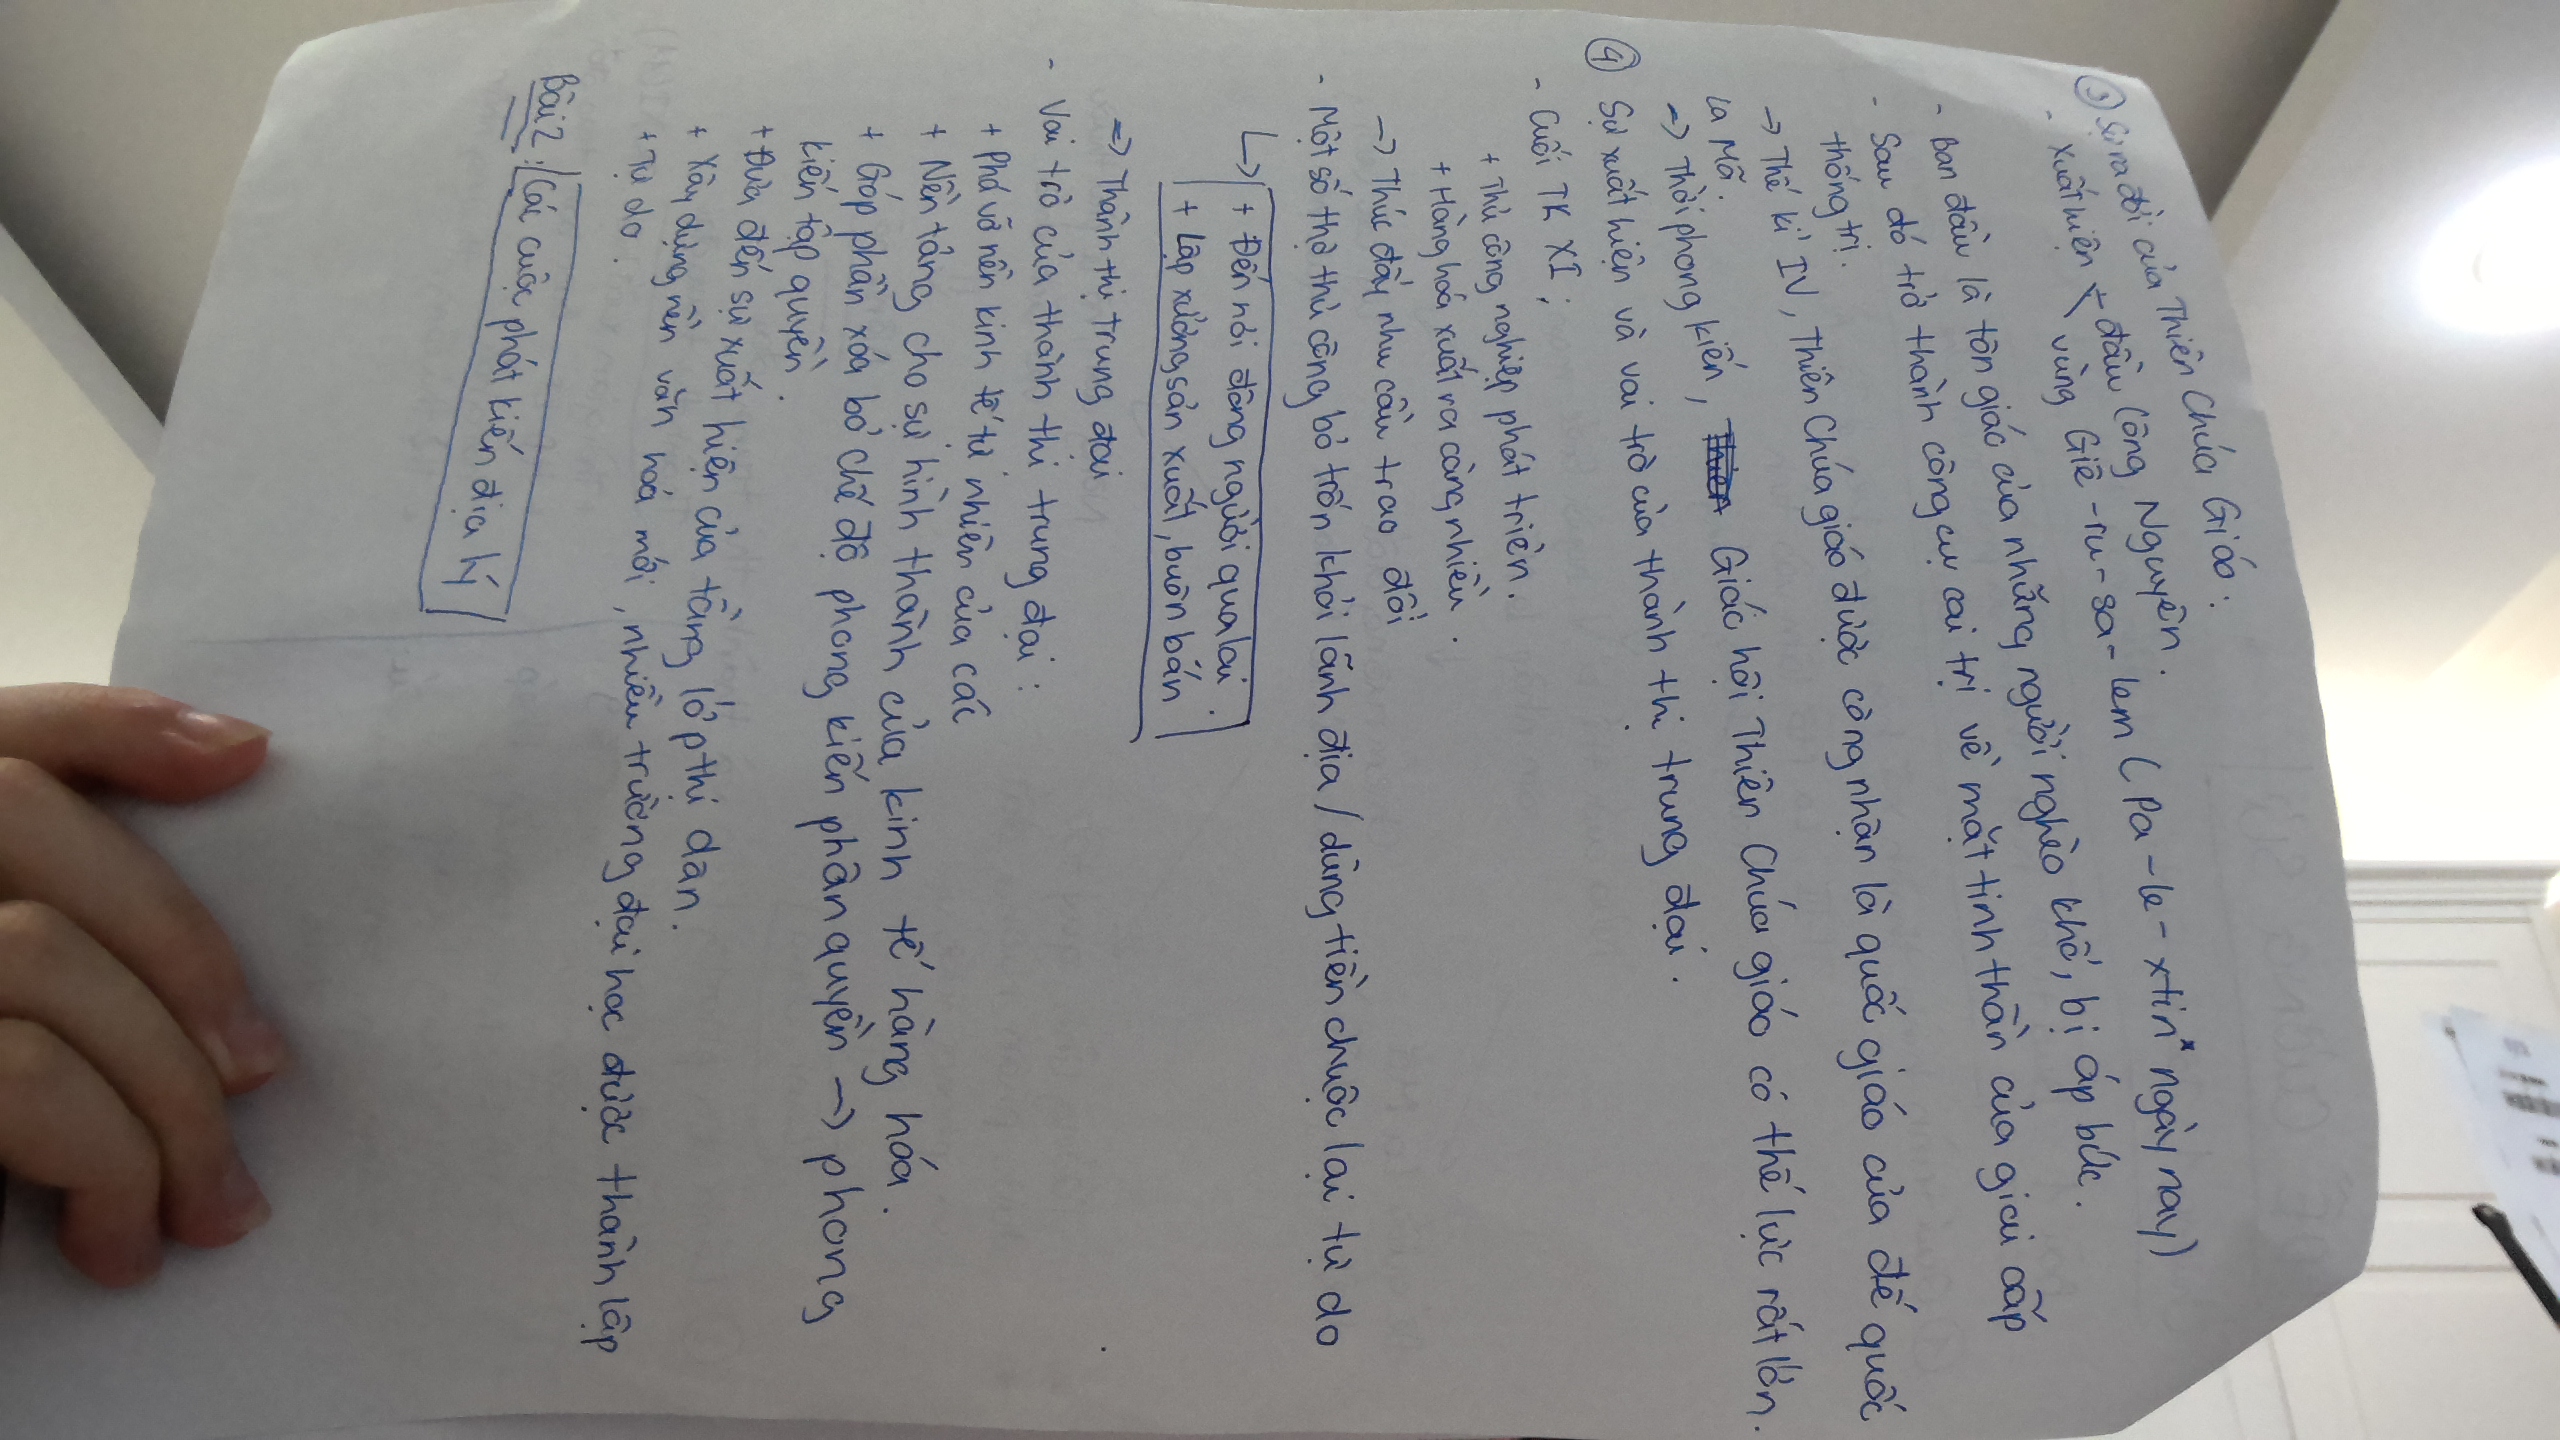 ③ Sự ra đời của Thiên Chúa Giáo:
- xuất hiện + đầu Công Nguyên.
vùng Giê-ru-sa-lem (Pa-le-xtin ngày nay)
- Ban đầu là tôn giáo của những người nghèo khổ, bị áp bức.
- Sau đó trở thành công cụ cai trị về mặt tinh thần của giai cấp
thống trị.
→ Thế kỉ IV, Thiên Chúa giáo được công nhận là quốc giáo của đế quốc
La Mã.
=> Thời phong kiến, Giáo hội Thiên Chúa giáo có thế lực rất lớn.
④ Sự xuất hiện và vai trò của thành thị trung đại.
- Cuối TK XI:
+ Thủ công nghiệp phát triển.
+ Hàng hoá xuất ra càng nhiều.
→ Thúc đẩy nhu cầu trao đổi
- Một số thợ thủ công bỏ trốn khỏi lãnh địa / dùng tiền chuộc lại tự do
↳ + Đến nơi đông người qua lại.
+ Lập xưởng sản xuất, buôn bán
=> Thành thị trung đại
- Vai trò của thành thị trung đại:
+ Phá vỡ nền kinh tế tự nhiên của các
+ Nền tảng cho sự hình thành của kinh tế hàng hóa.
+ Góp phần xóa bỏ chế độ phong kiến phân quyền → phong
kiến tập quyền.
+ Đưa đến sự xuất hiện của tầng lớp thị dân.
+ Xây dựng nền văn hoá mới, nhiều trường đại học được thành lập
+ Tự do.
Bài 2: Các cuộc phát kiến địa lý